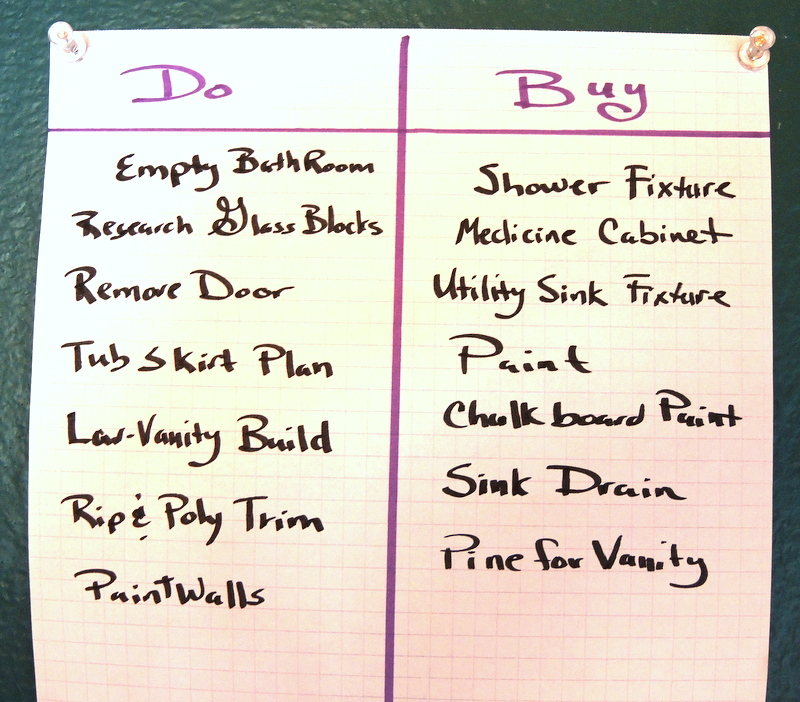 Do
Empty BathRoom
Research Glass Blocks
Remove Door
Tub Skirt Plan
Lav-Vanity Build
Rip & Poly Trim
Paint Walls
Buy
Shower Fixture
Medicine Cabinet
Utility Sink Fixture
Paint
Chalk board Paint
Sink Drain
Pine for Vanity